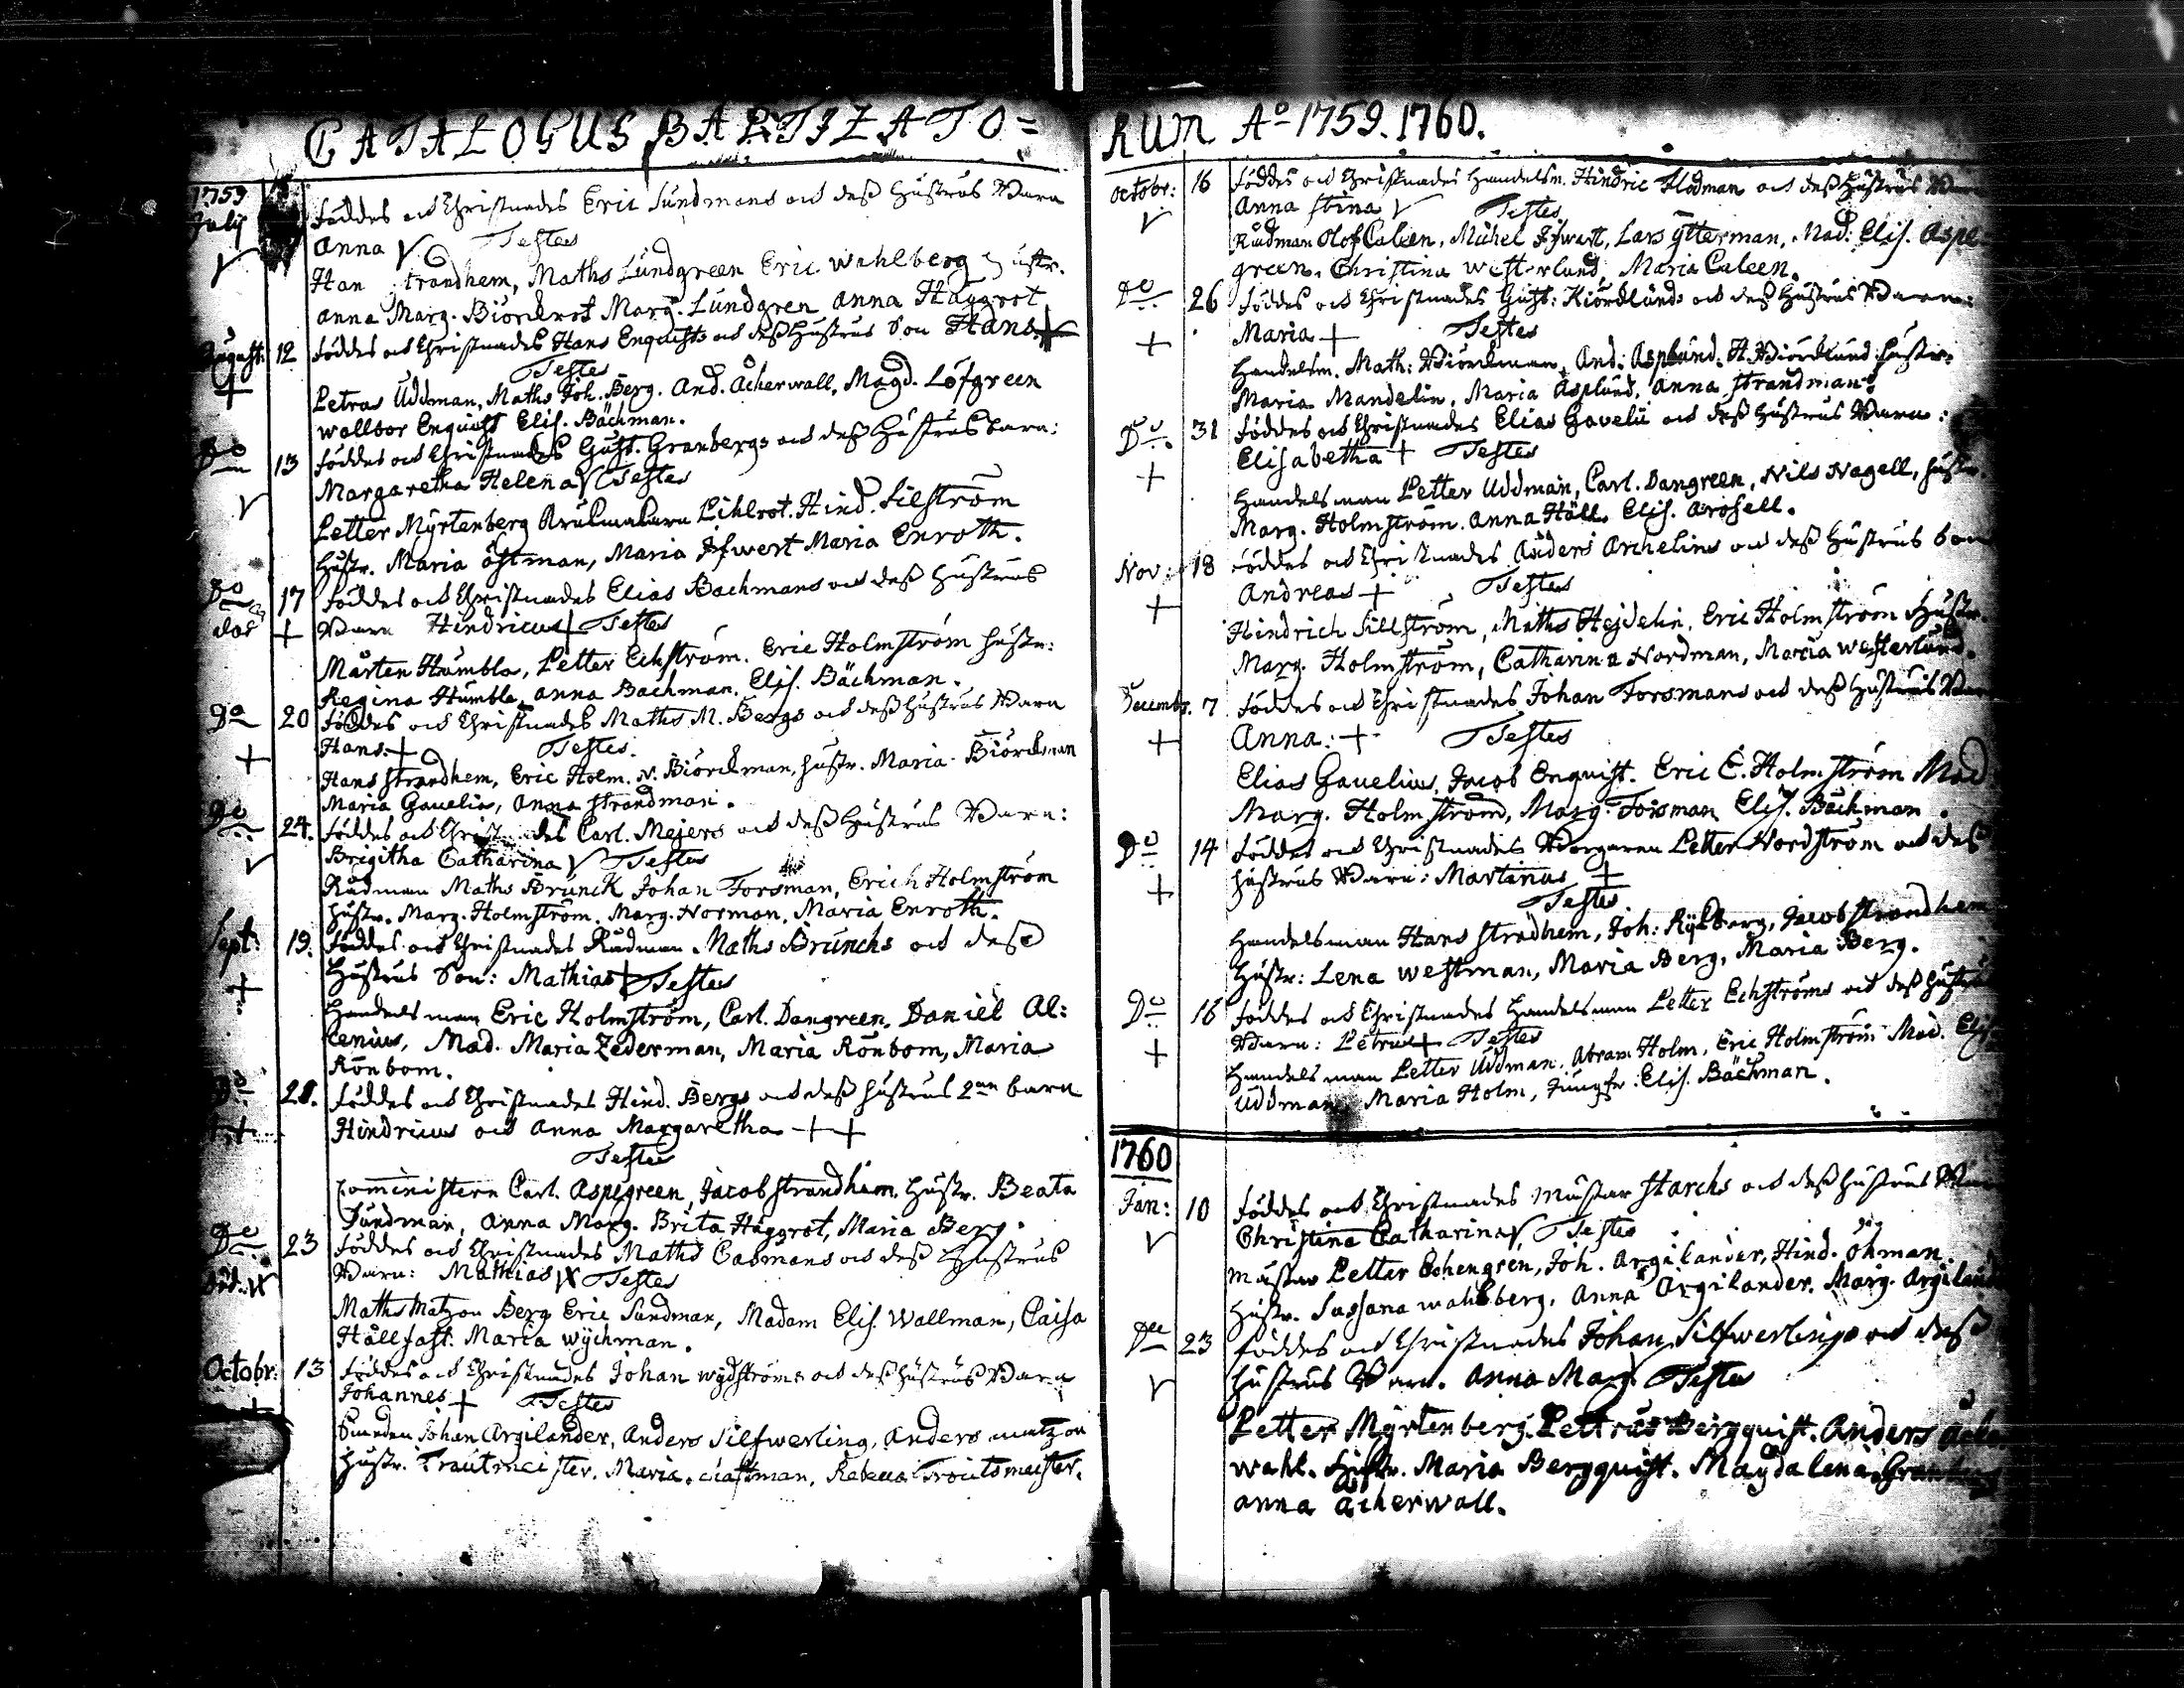 CATALOGUS BAPTIZATO=
1759
July föddes och Christnades Eric Sundmans och deß Hustrus Barn
Anna Testes
Han trandhem, Maths Lundgreen Eric Wahlberg ustr.
Anna Marg. Biörckrot Marg. Lundgren Anna Häggrot
August: 12 föddes och Christnades Hans Enquists och deß Hustrus Son Hans +
+ Testes
Petrus Uddman, Maths Joh. Berg. And. Åckerwall, Magd. Löfgreen
Wallbor Enquist Elis. Bäckman.
Do 13 föddes och Christnades Gust. Granbergs och deß Hustrus barn:
Margaretha Helena Testes
Petter Myrtenberg Pihlrot. Hind. Silström
Hustr. Maria Östman, Maria Ifwert Maria Enroth.
Do 17 föddes och Christnades Elias Backmans och deß Hustrus
+ Barn Hindricus + Testes
Mårten Humbla, Petter Eckström. Eric Holmström Hustr:
Regina Humbla, Anna Backman. Elis. Bäckman.
Do 20 föddes och Christnades Maths M. Bergs och deß Hustrus Barn
+ Hans. + Testes.
Hans Strandhem, Eric Holm. N. Biörckman, Hustr. Maria Biörckman
Maria Gavelia, Anna Strandman.
Do 24. föddes och Christnades Carl. Mejers och deß Hustrus Barn:
Brigitha Catharina Testes
Rådman Maths Brunck Johan Forsman, Erich Holmström
Hustr. Marg. Holmström. Marg. Norman. Maria Enroth.
Sept: 19. föddes och Christnades Rådman Maths Bruncks och deß
+ Hustrus Son: Mathias + Testes
Handelsman Eric Holmström, Carl. Dangreen, Daniel Al:
cenius, Mad. Maria Zederman, Maria Rönbom, Maria
Rönbom.
Do 21. föddes och Christnades Hind. Bergs och deß Hustrus 2ne barn
++ Hindricus och Anna Margaretha ++
Testes
Comministern Carl. Aspegreen, Jacob Strandhem. Hustr. Beata
Sundman, Anna Marg. Brita Häggrot, Maria Berg.
Do 23 föddes och Christnades Maths Casmans och deß Hustrus
Barn: Mathias Testes
Maths Matzon Berg Eric Sundman, Madam Elis. Wallman, Caisa
Hällfast. Maria Wyckman.
Octobr: 13 föddes och Christnades Johan Wydströms och deß Hustrus Barn
+ Johannes + Testes
Johan Argilander, Anders Silfwerling, Anders Matzon
Hustr. Trautmeister. Maria. Rebecca Troutsmeister.
RUM Ao 1759. 1760.
Octobr: 16 föddes och Christnades Handelsm. Hindric Flodman och deß Hustrus Barn
Anna Stina Testes
Rådman Olof Caleen, Michel Ifwart, Lars Ytterman, Mad: Elis. Aspe
green. Christina Westerlund, Maria Caleen.
Do 26 föddes och Christnades Gust: Kiörcklunds och deß Hustrus Barn:
+ Maria + Testes
Handelsm. Math: Biörckman, And: Asplund. H. Biörcklund Hustr.
Maria Mandelin, Maria Asplund, Anna Strandman.
Do 31 föddes och Christnades Elias Gavelii och deß Hustrus Barn:
+ Elisabetha + Testes
Handelsman Petter Uddman, Carl. Dangreen, Nils Nagell, Hustr.
Marg. Holmström. Anna Häll. Elis. Arosell.
Nov: 18 föddes och Christnades Anders Archelius och deß Hustrus barn
+ Andreas + Testes
Hindrich Sillström, Maths Hejdelin, Eric Holmström Hustr.
Marg. Holmström, Catharina Nordman, Maria Westerlund.
Decembr. 7 föddes och Christnades Johan Forsmans och deß Hustrus Barn
+ Anna: + Testes
Elias Gavelius, Jacob Enquist. Eric E. Holmström Mad:
Marg. Holmström, Marg. Forsman Elis. Bäckman.
Do 14 föddes och Christnades Borgaren Petter Nordström och deß
+ Hustrus Barn: Martinus +
Testes.
Handelsman Hans Strndhem, Joh: Rydberg, Jacob Strandhem
Hustr: Lena Westman, Maria Berg, Maria Berg.
Do 16 föddes och Christnades Handelsman Petter Eckströms och deß Hustrus
+ Barn: Petrus + Testes
Handelsman Petter Uddman, Abram Holm, Eric Holmström Mad. Elis.
Uddman, Maria Holm, Jungfr: Elis. Bäckman.
1760
Jan: 10 föddes och Christnades Mästar Starcks och deß Hustrus Barn
Christina Catharina, Testes
Mästar Petter Echengren, Joh. Argilander, Hind. Öhman.
Hustr. Sussana Wahlberg, Anna Argilander. Marg. Argiland
Do 23 föddes och Christnades Johan Silfwerlings och deß
Hustrus Barn. Anna Marg. Testes
Petter Myrtenberg. Pettrus Bergquist. Anders Åcker
wahl. Hustr. Maria Bergquist. Magdalena. Granberg
Anna Åckerwall.